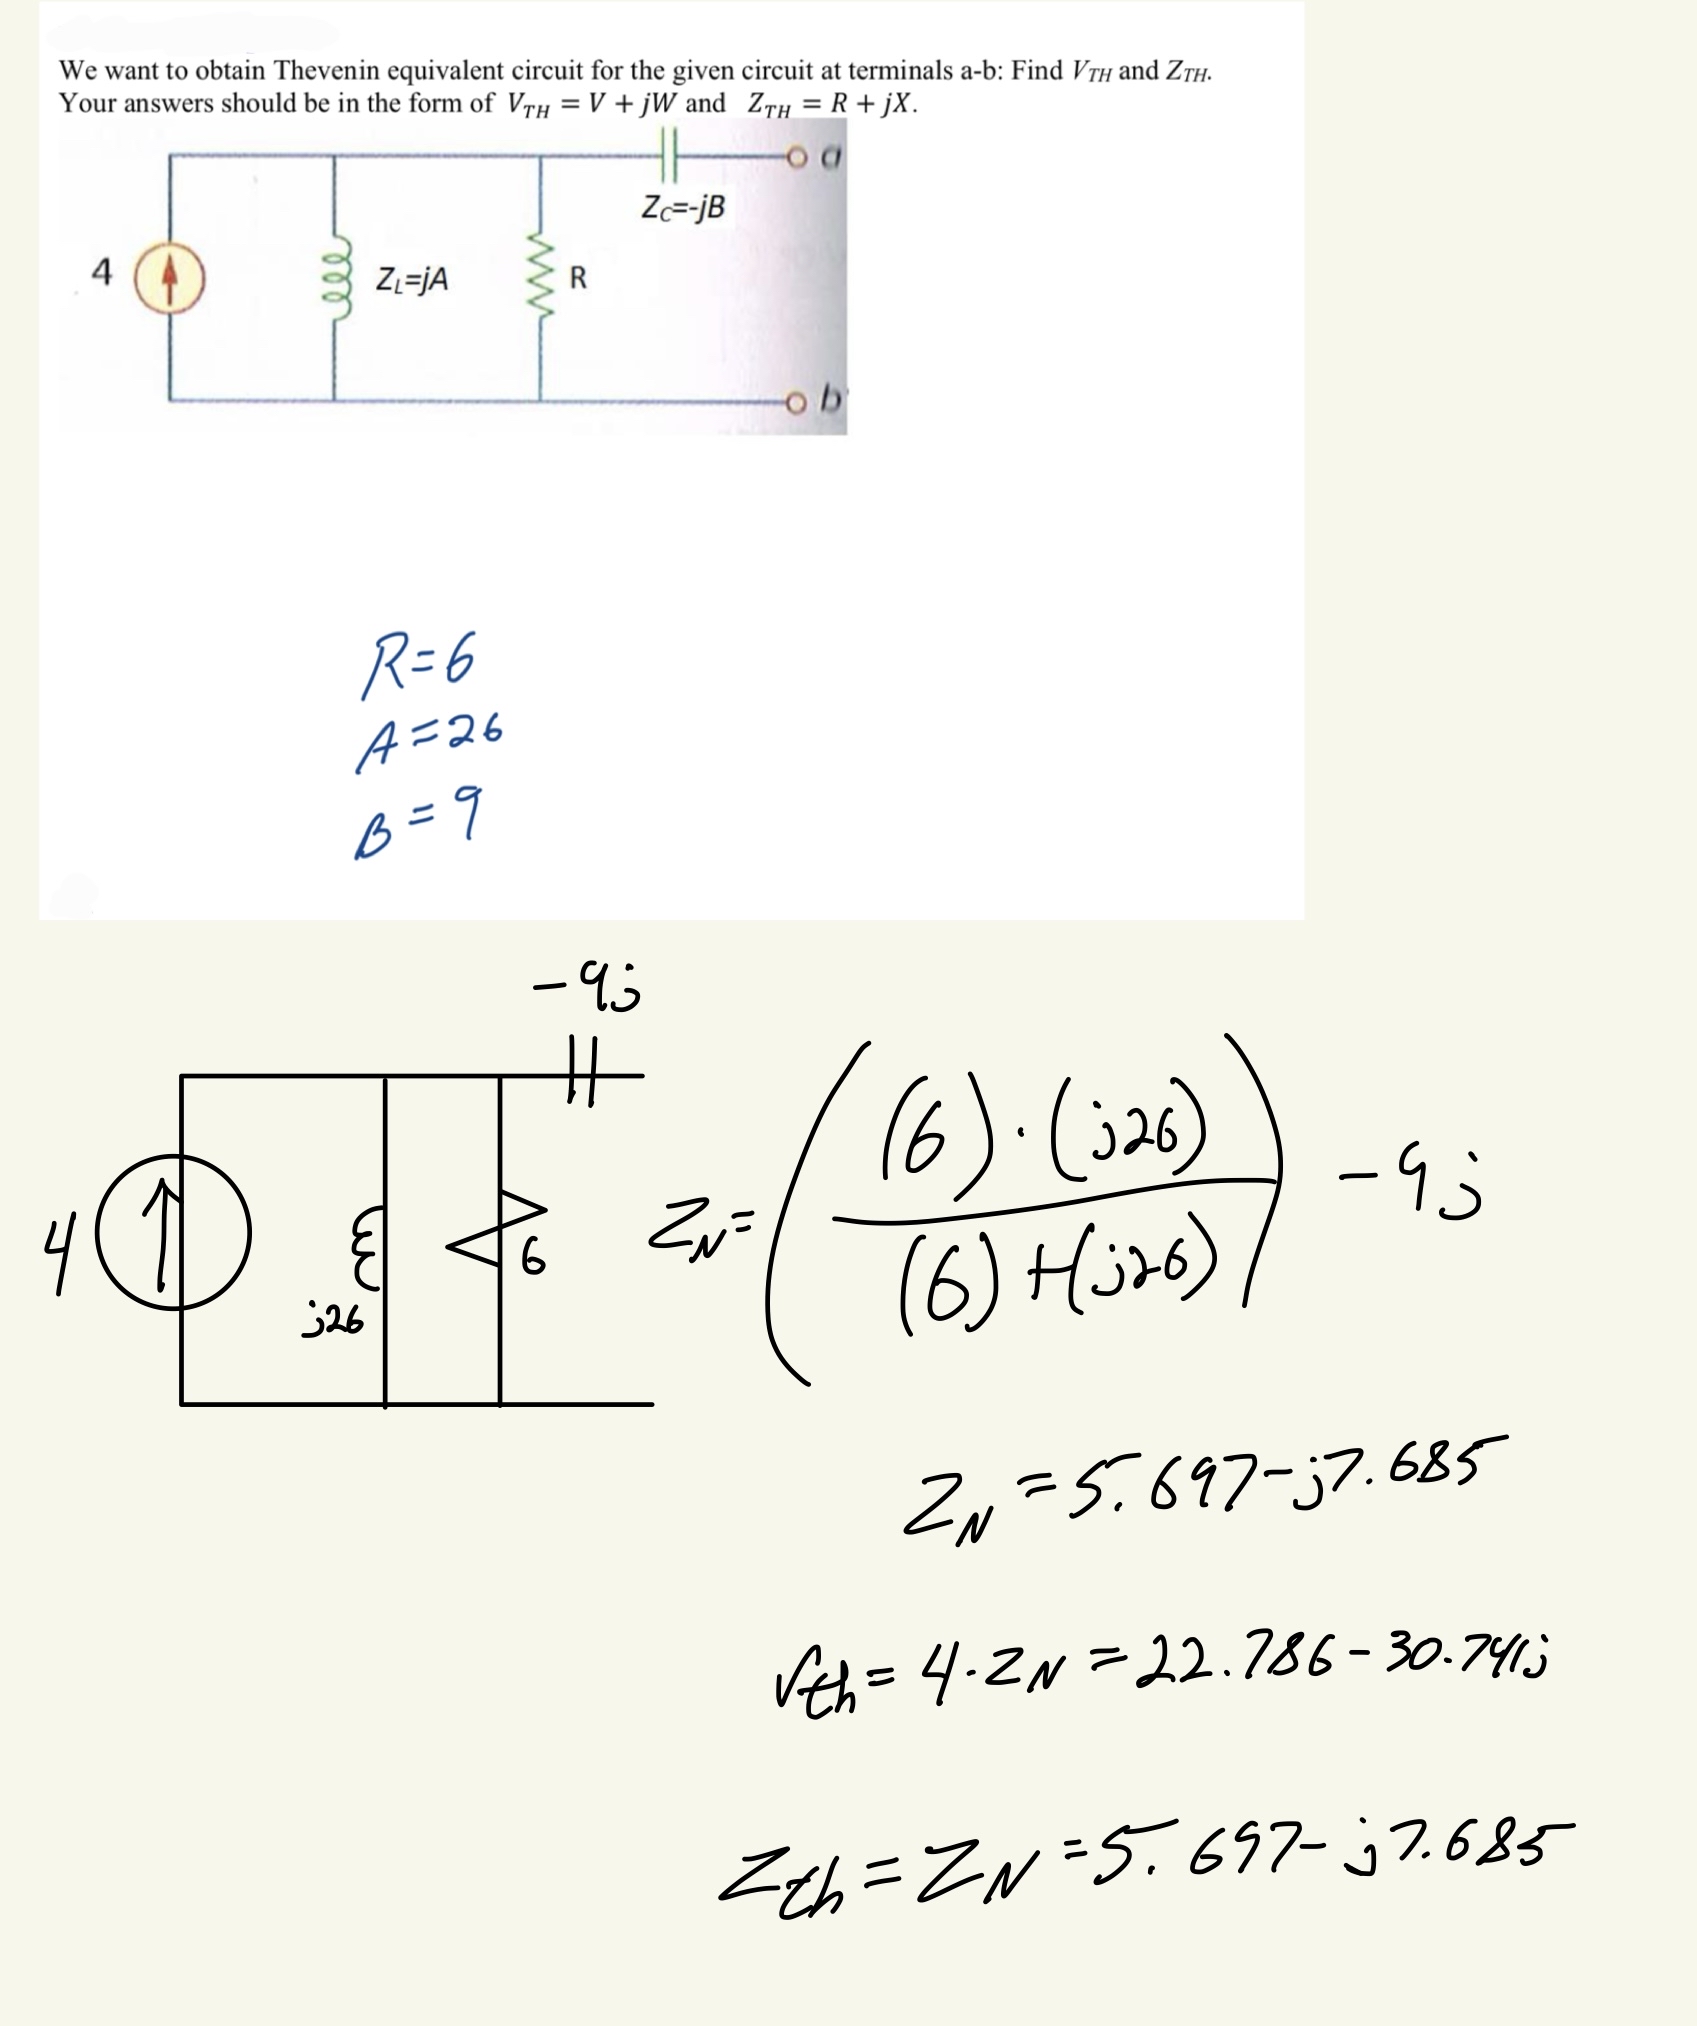 We want to obtain Thevenin equivalent circuit for the given circuit at terminals a-b: Find VTH and ZTH.
Your answers should be in the form of VTH = V + jW and ZTH = R + jX.
a
ZC=-jB
4
ZL=jA
R
b
R=6
A=26
B=9
-9j
4
j26
6
ZN= ((6)·(j26) / (6)+(j26)) -9j
ZN=5.697-j7.685
Vth=4·ZN=22.786-30.741j
Zth=ZN=5.697-j7.685